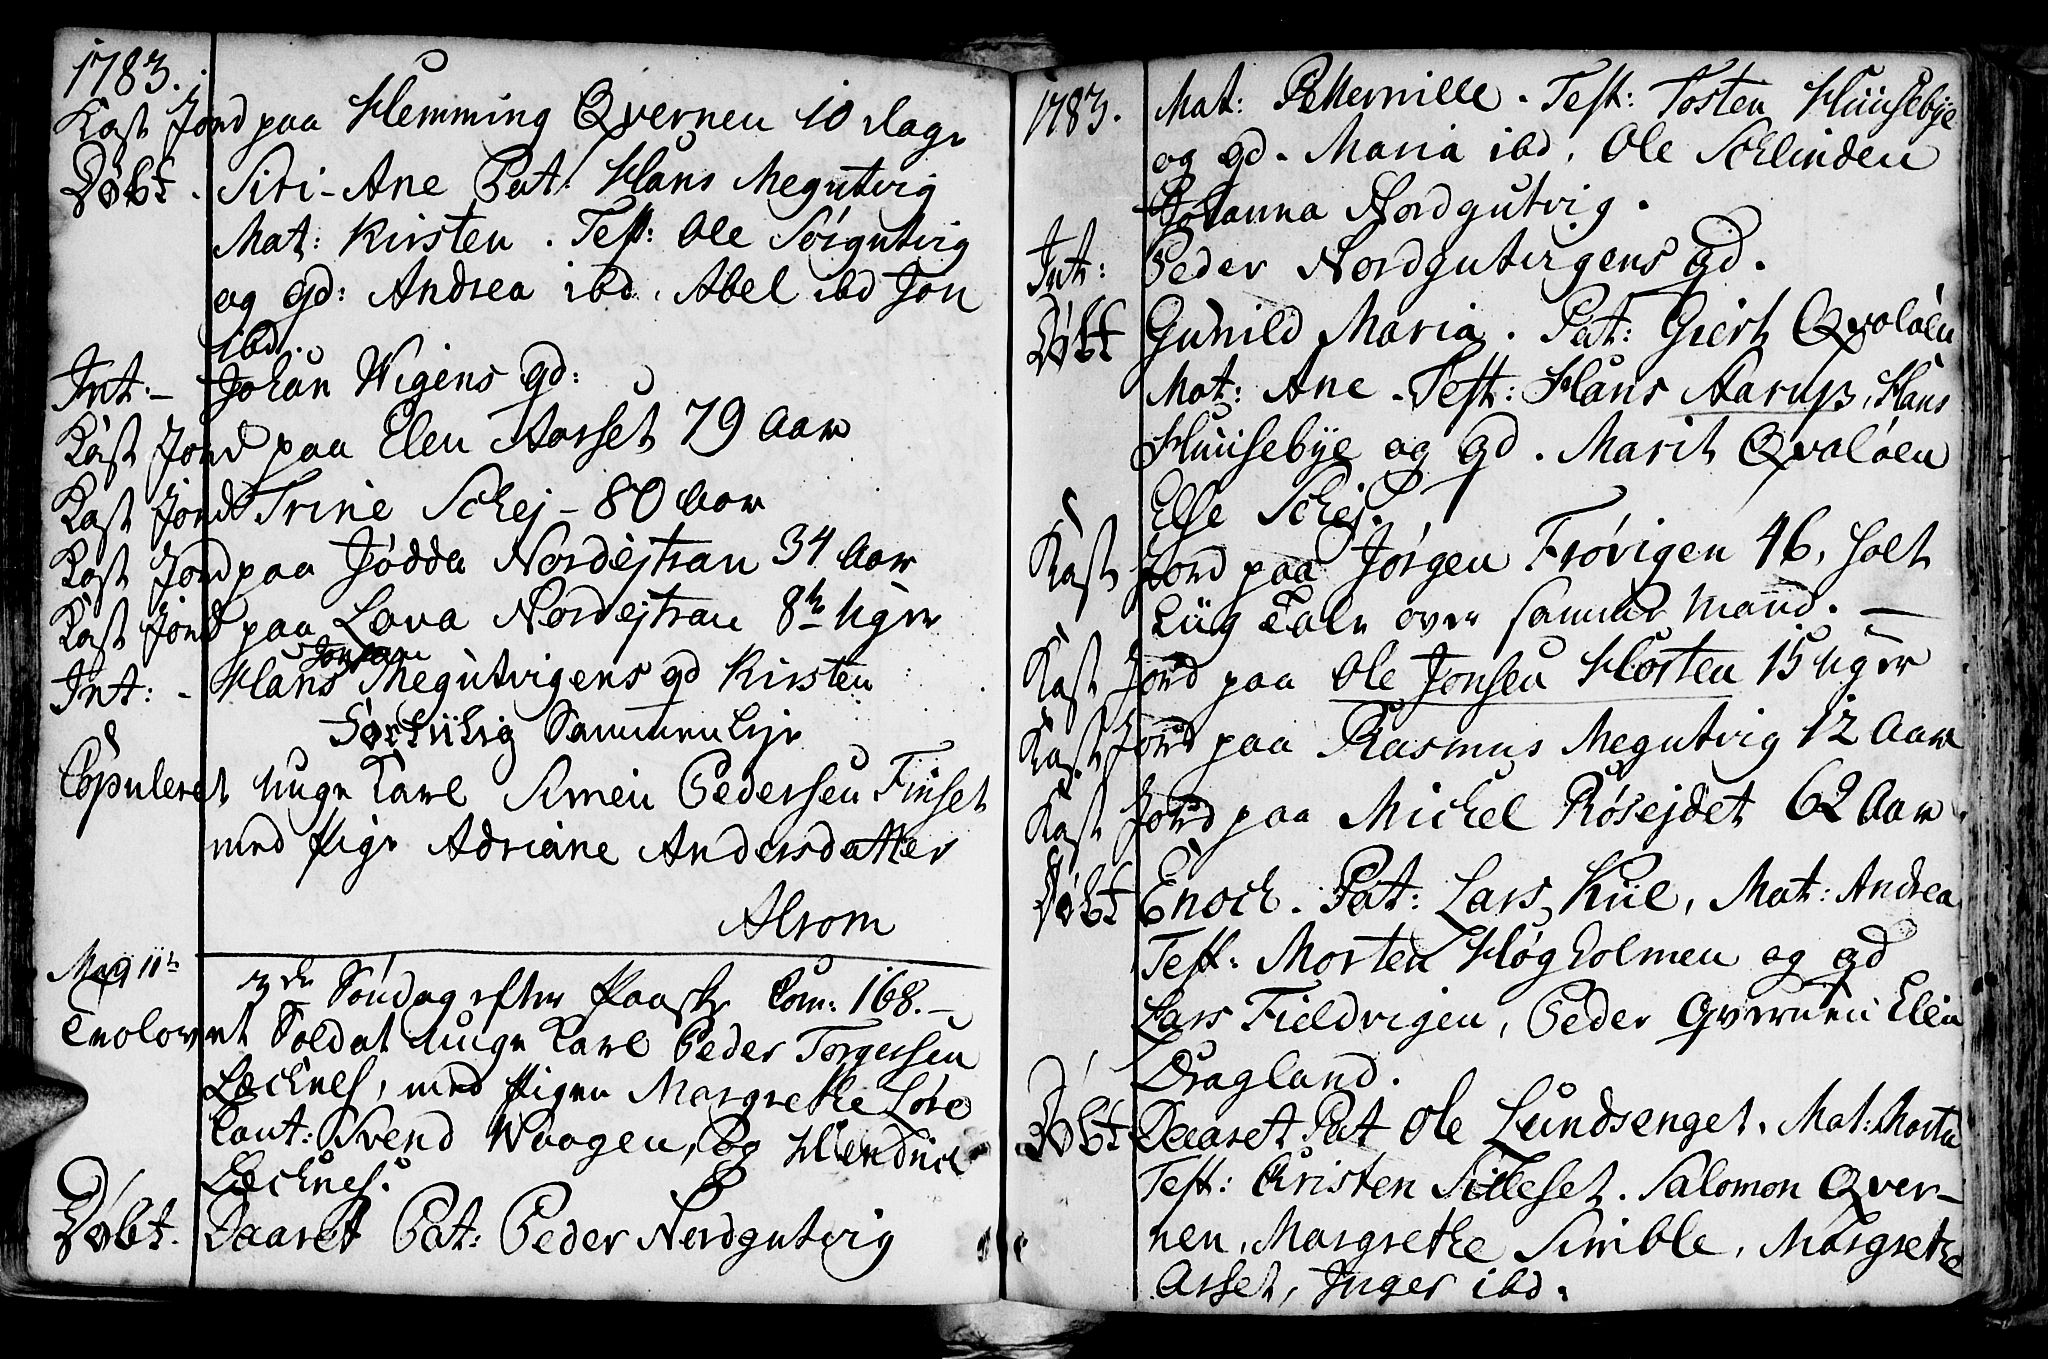 1783.
Kast Jord paa Hemming Qvernen 10 dage
Døbt. Siri-Ane Pat: Hans Megutvig
Mat: Kirsten. Test: Ole Sørgutvig
og gd: Andrea ibd, Abel ibd Jon
ibd.
Int:- Johan Wigens gd:
Kast Jord paa Elen Aarset 79 Aar
Kast Jord Trine Schej - 80 Aar
Kast Jord paa Jødda Nordejstran 34 Aar
Kast Jord paa Lava Nordejstran 8te Uger
Jonsen
Int: - Hans Megutvigens gd Kirsten
Sammenleye
Copuleret unge Karl Simen Pedersen Finset
med Pige Adriane Andersdatter
Alrom
May 11te 3de Søndag efter Paaske Com: 168.-
Trolovet Soldat unge Karl Peder Torgersen
Lechnes, med Pigen Margrethe Lore
Caut: Svend Waagen, og Hendrich
Lechnes.
Døbt. Daaret Pat: Peder Nordgutvig
1783. Mat: Petternille. Test: Tosten Huusebye
og gd. Maria ibd, Ole Schlinden
Johanna Nordgutvig.
Int: Peder Nordgutvigens gd.
Døbt Gunild Maria. Pat: Giert Qvaløen
Mat: Ane. Test: Hans Aarup, Hans
Huusebye og gd. Marit Qvaløen
Else Schej.
Kast Jord paa Jørgen Frøvigen 46, holt
Liig Tale over samme Mand. -
Kast Jord paa Ole Jonsen Horten 15 Uger
Kast Jord paa Rasmus Megutvig 12 Aar
Kast Jord paa Michel Røsejdet 62 Aar
Døbt Enoch. Pat: Lars Kiil, Mat: Andrea
Test: Morten Høgholmen og gd
Lars Fieldvigen, Peder Qvernen Elen
Dragland.
Døbt Daaret Pat Ole Lundsenget. Mat: Marta
Test: Kristen Silleset. Salomon Qver-
nen, Margrethe Simble, Margrethe
Asset, Inger ibd.